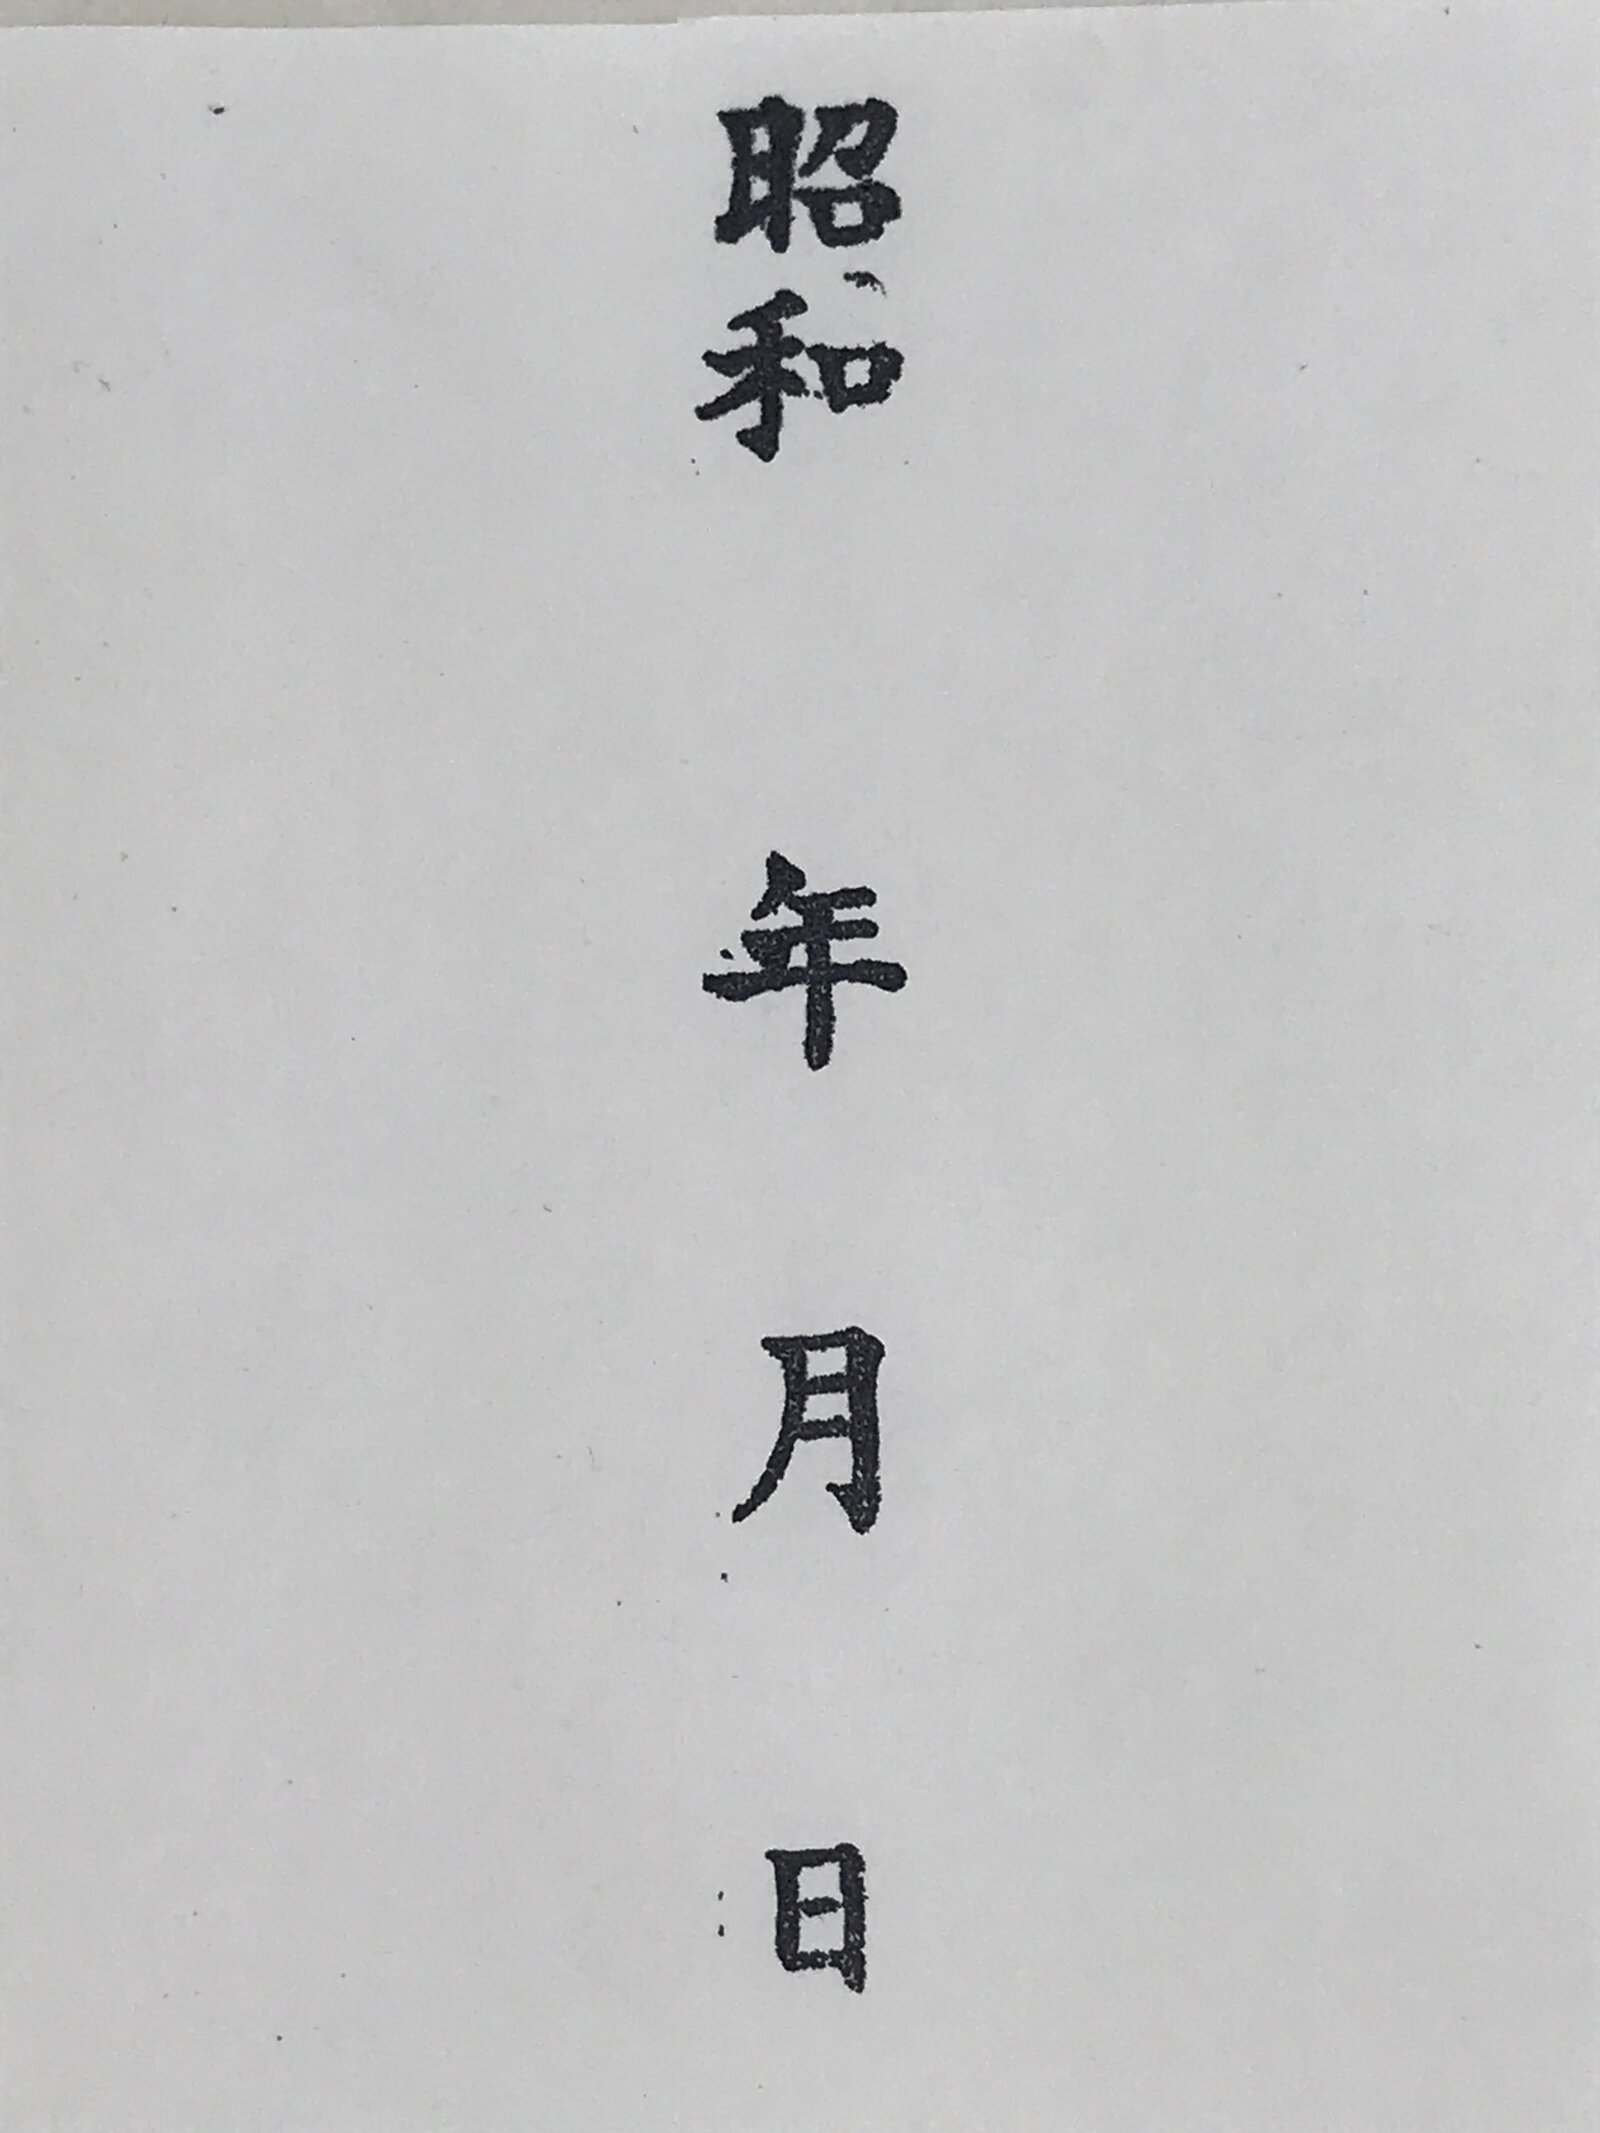 昭和　年　月　日